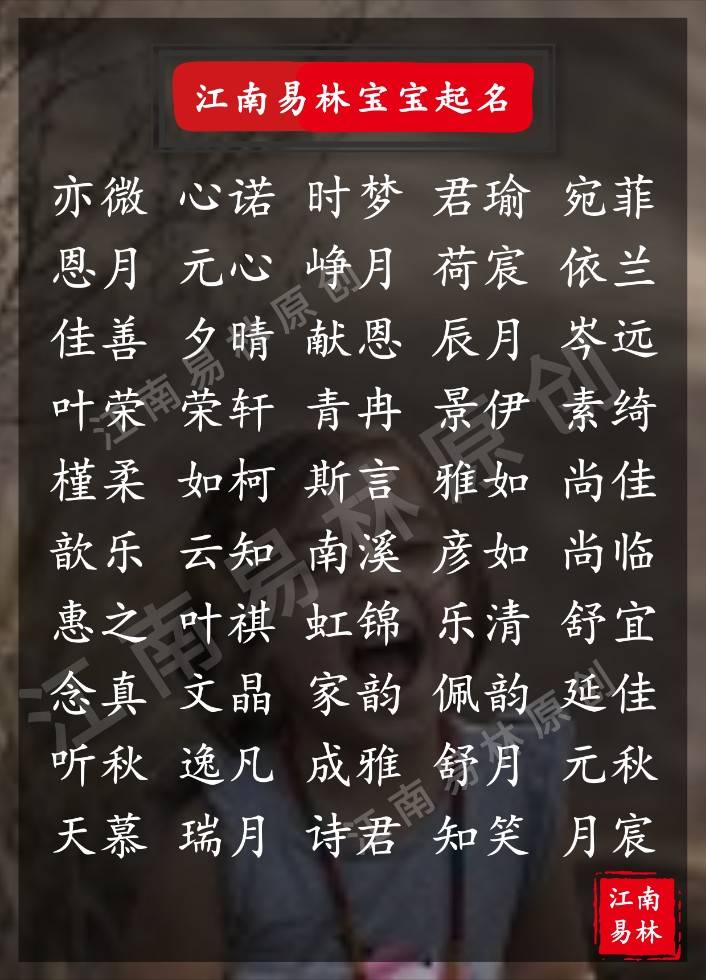 江南易林宝宝起名
亦微 心诺 时梦 君瑜 宛菲
恩月 元心 峥月 荷宸 依兰
佳善 夕晴 献恩 辰月 岑远
叶荣 荣轩 青冉 景伊 素绮
槿柔 如柯 斯言 雅如 尚佳
歆乐 云知 南溪 彦如 尚临
惠之 叶祺 虹锦 乐清 舒宜
念真 文晶 家韵 佩韵 延佳
听秋 逸凡 成雅 舒月 元秋
天慕 瑞月 诗君 知笑 月宸
江南易林原创
江南易林原创
江南易林原创
江南
易林